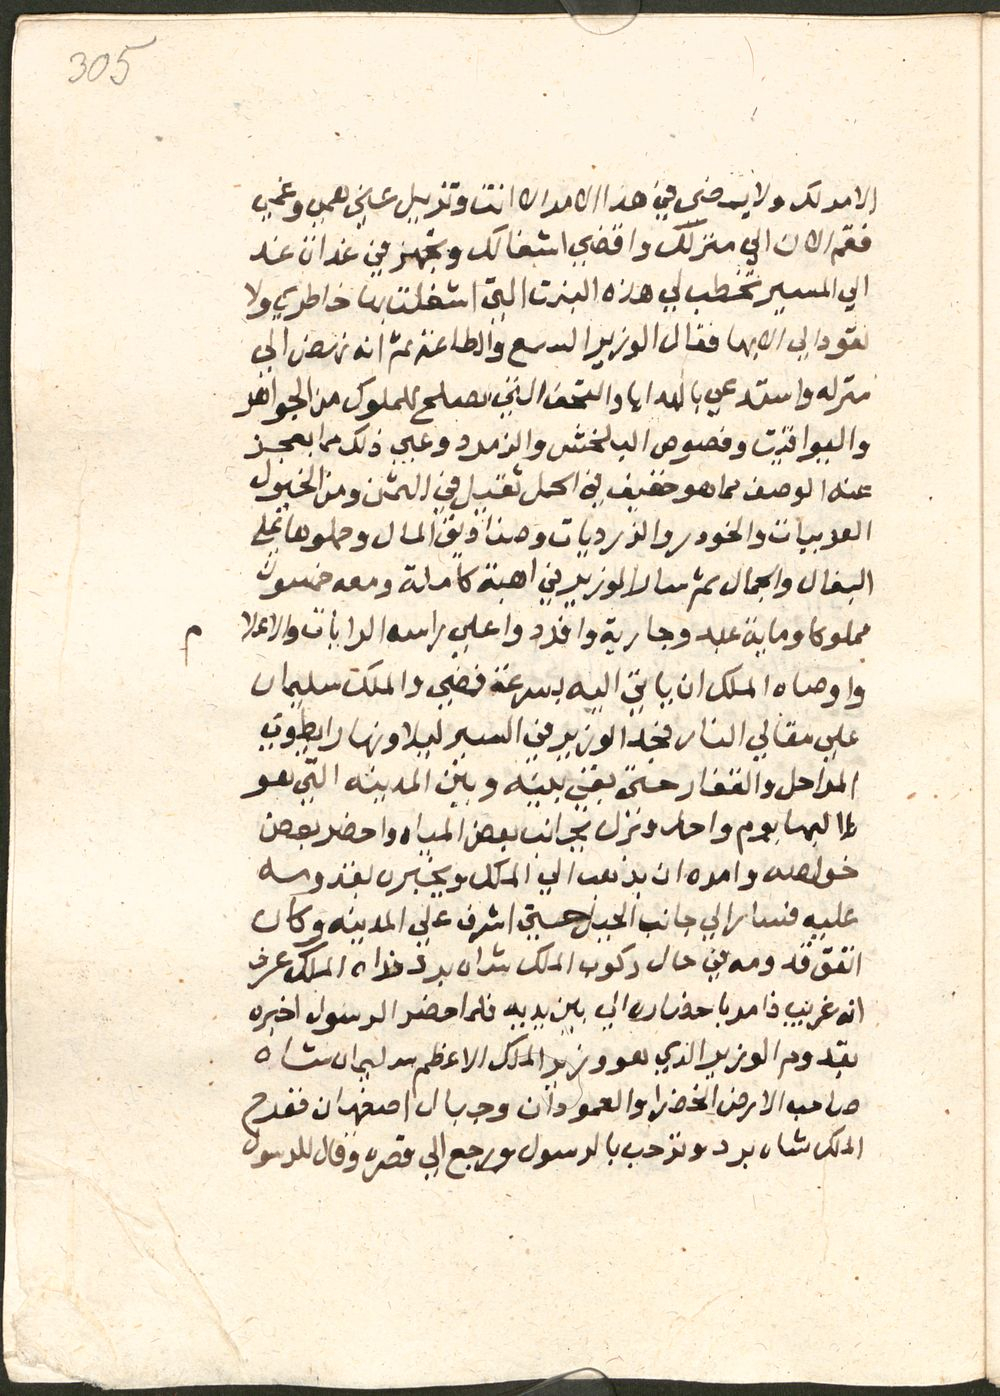 305
الامر لك ولا يمضى في هذا الامر الا انت وتزيل عني همي وغمي
فقم الان الي منزلك واقضي اشغالك وتجهز في غدان غد
الي المسير تخطب لي هذه البنت التي اشغلت بها خاطري ولا
تعود الي الا بها فقال الوزير السمع والطاعة ثم انه نهض الي
منزله واستدعي بالهدايا والتحف التي تصلح للملوك من الجواهر
واليواقيت وفصوص البلخش والزمرد وغير ذلك مما يعجز
عنه الوصف مما هو خفيف في الحمل ثقيل في الثمن ومن الخيول
العربيات والخود والزرديات وصناديق المال وحملوها علي
البغال والجمال ثم سار الوزير في اهبة كاملة ومعه خمسون
مملوكا وماية عبد وجارية وافردوا علي راسه الرايات والاعلا
م
واوصاه الملك ان ياتي اليه بسرعة فمضي والملك سليمان
علي مقالي النار فجد الوزير في السير ليلا ونهارا يطوي
المراحل والقفار حتي بقي بينه وبين المدينه التي هو
اليها يوم واحد ونزل بجانب بعض المياه واحضر بعض
خواصه وامره ان يذهب الي الملك ويخبره بقدومه
عليه فسار الي جانب الجبل حتي اشرف علي المدينه وكان
اتفق قدومه في حال ركوب الملك شاه برد فراه الملك عرف
انه غريب فامر باحضاره الي بين يديه فلما احضر الرسول اخبره
بقدوم الوزير الذي هو وزير الملك الاعظم سليمان شاه
صاحب الارض الخضرا والعمودان وجبال اصفهان ففرح
الملك شاه برد وترحب بالرسول ورجع الي قصره وقال للرسول